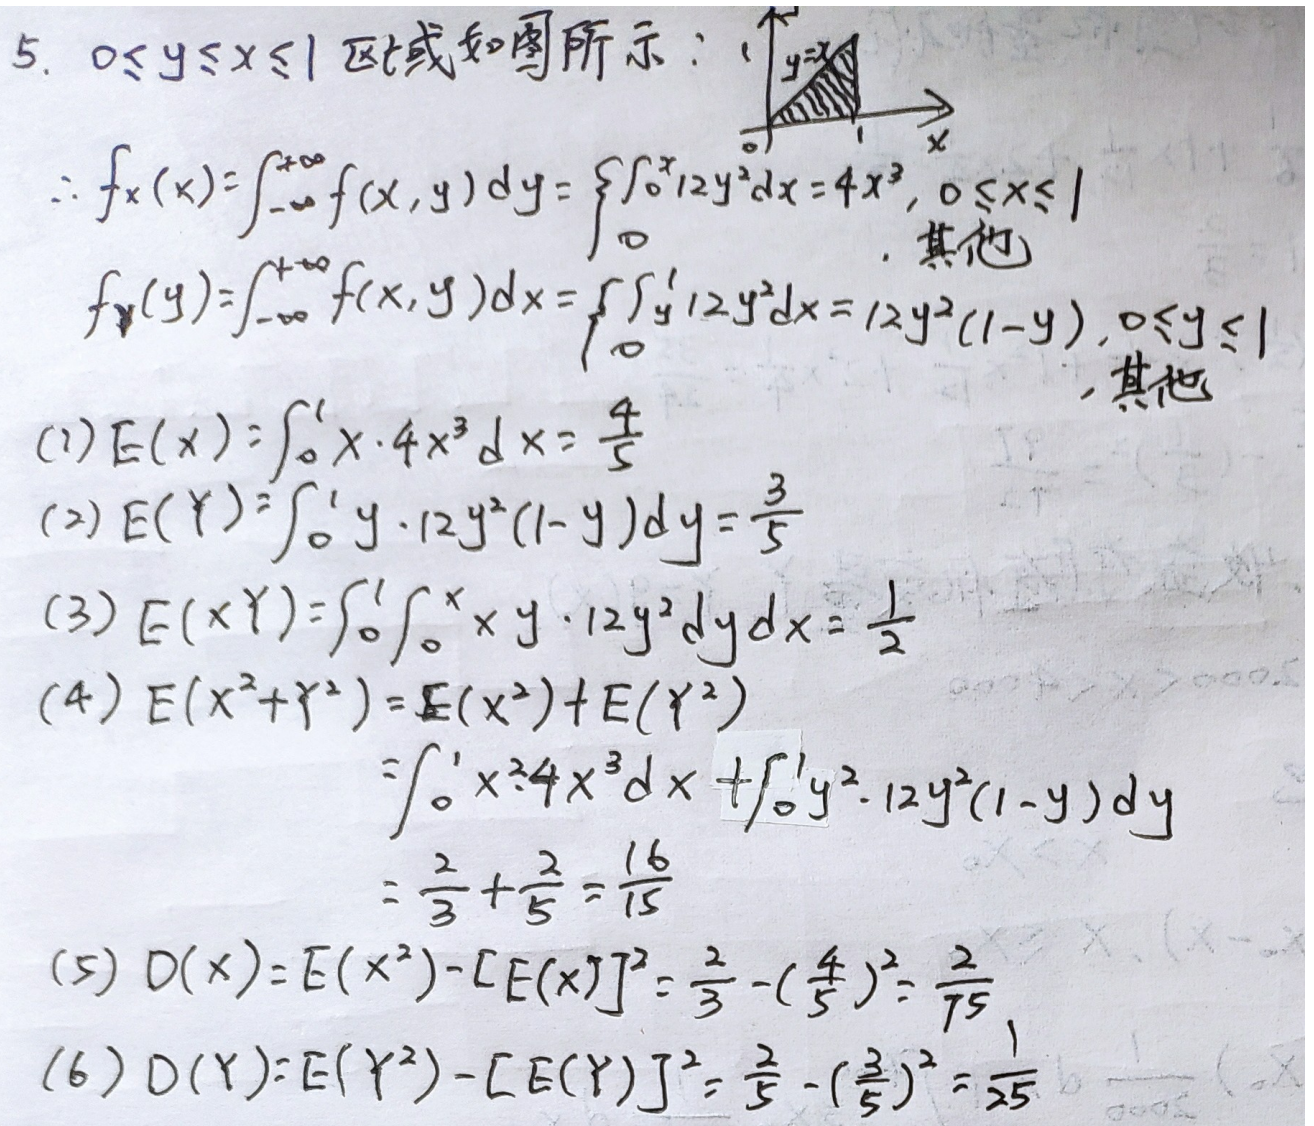 5. 0≤y≤x≤1 区域如图所示：
1 y=x
0 1 x
∴ fx(x)=∫_{-∞}^{+∞} f(x,y)dy={∫_0^x 12y²dx=4x³, 0≤x≤1
0 , 其他
fY(y)=∫_{-∞}^{+∞} f(x,y)dx={∫_y^1 12y²dx=12y²(1-y), 0≤y≤1
0 , 其他
(1) E(X)=∫_0^1 x·4x³dx=4/5
(2) E(Y)=∫_0^1 y·12y²(1-y)dy=3/5
(3) E(XY)=∫_0^1∫_0^x xy·12y²dydx=1/2
(4) E(X²+Y²)=E(X²)+E(Y²)
=∫_0^1 x²·4x³dx+∫_0^1 y²·12y²(1-y)dy
=2/3+2/5=16/15
(5) D(X)=E(X²)-[E(X)]²=2/3-(4/5)²=2/75
(6) D(Y)=E(Y²)-[E(Y)]²=2/5-(3/5)²=1/25